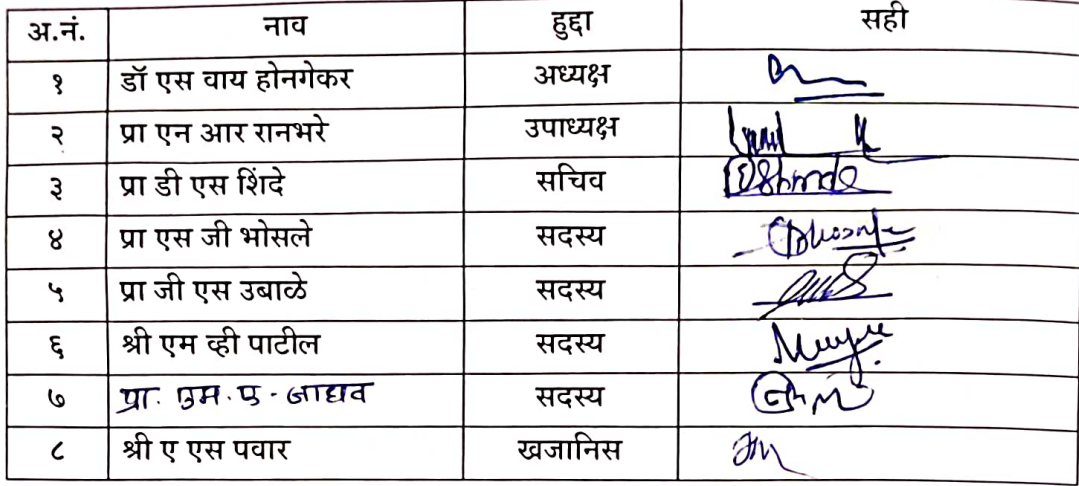 अ.नं. नाव हुद्दा सही
१ डॉ एस वाय होनगेकर अध्यक्ष
२ प्रा एन आर रानभरे उपाध्यक्ष
३ प्रा डी एस शिंदे सचिव DShinde
४ प्रा एस जी भोसले सदस्य Bhosale
५ प्रा जी एस उबाळे सदस्य
६ श्री एम व्ही पाटील सदस्य
७ प्रा. एम. ए. जाधव सदस्य
८ श्री ए एस पवार खजानिस